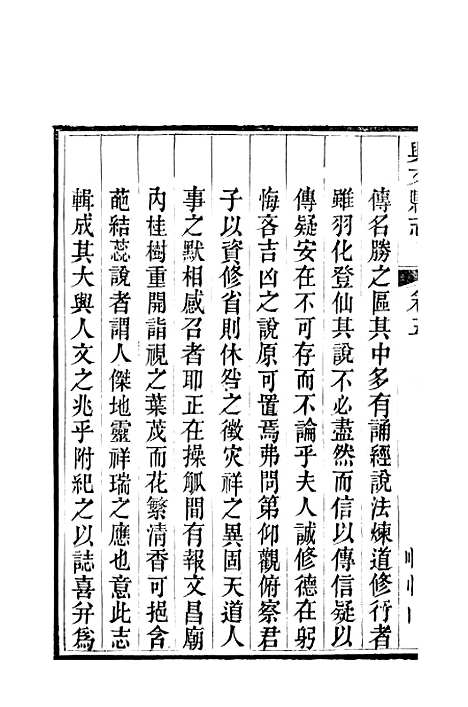 興文縣志 卷五
傳名勝之區其中多有誦經說法煉道修行者
雖羽化登仙其說不必盡然而信以傳信疑以
傳疑安在不可存而不論乎夫人誠修德在躬
悔吝吉凶之說原可置焉弗問第仰觀俯察君
子以資修省則休咎之徵灾祥之異固天道人
事之默相感召者耶正在操觚間有報文昌廟
內桂樹重開詣視之葉茂而花繁清香可挹含
葩結蕊說者謂人傑地靈祥瑞之應也意此志
輯成其大興人文之兆乎附紀之以誌喜弁爲